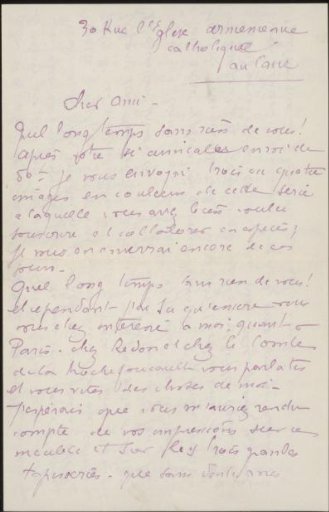 30 Rue l'Eglise armenienne
catholique
au Caire
Cher Ami -
Quel long temps sans rien de vous!
Après votre si amicale envoi de
50# je vous envoyai trois ou quatre
images en couleurs de cette série
à laquelle vous avez bien voulu
souscrire et collaborer en espèces;
je vous en enverrai encore de ces
jours -
Quel long temps sans rien de vous!
et cependant j'ai su qu'encore vous
vous étiez intéressé à moi, quant à
Paris - chez Redon et chez le Comte
de la Rochefoucauld vous parlates
et vous vites des choses de moi -
J'espérais que vous m'auriez rendu
compte de vos impressions sur ces
meubles et sur les trois grandes
tapisseries - que sans doute